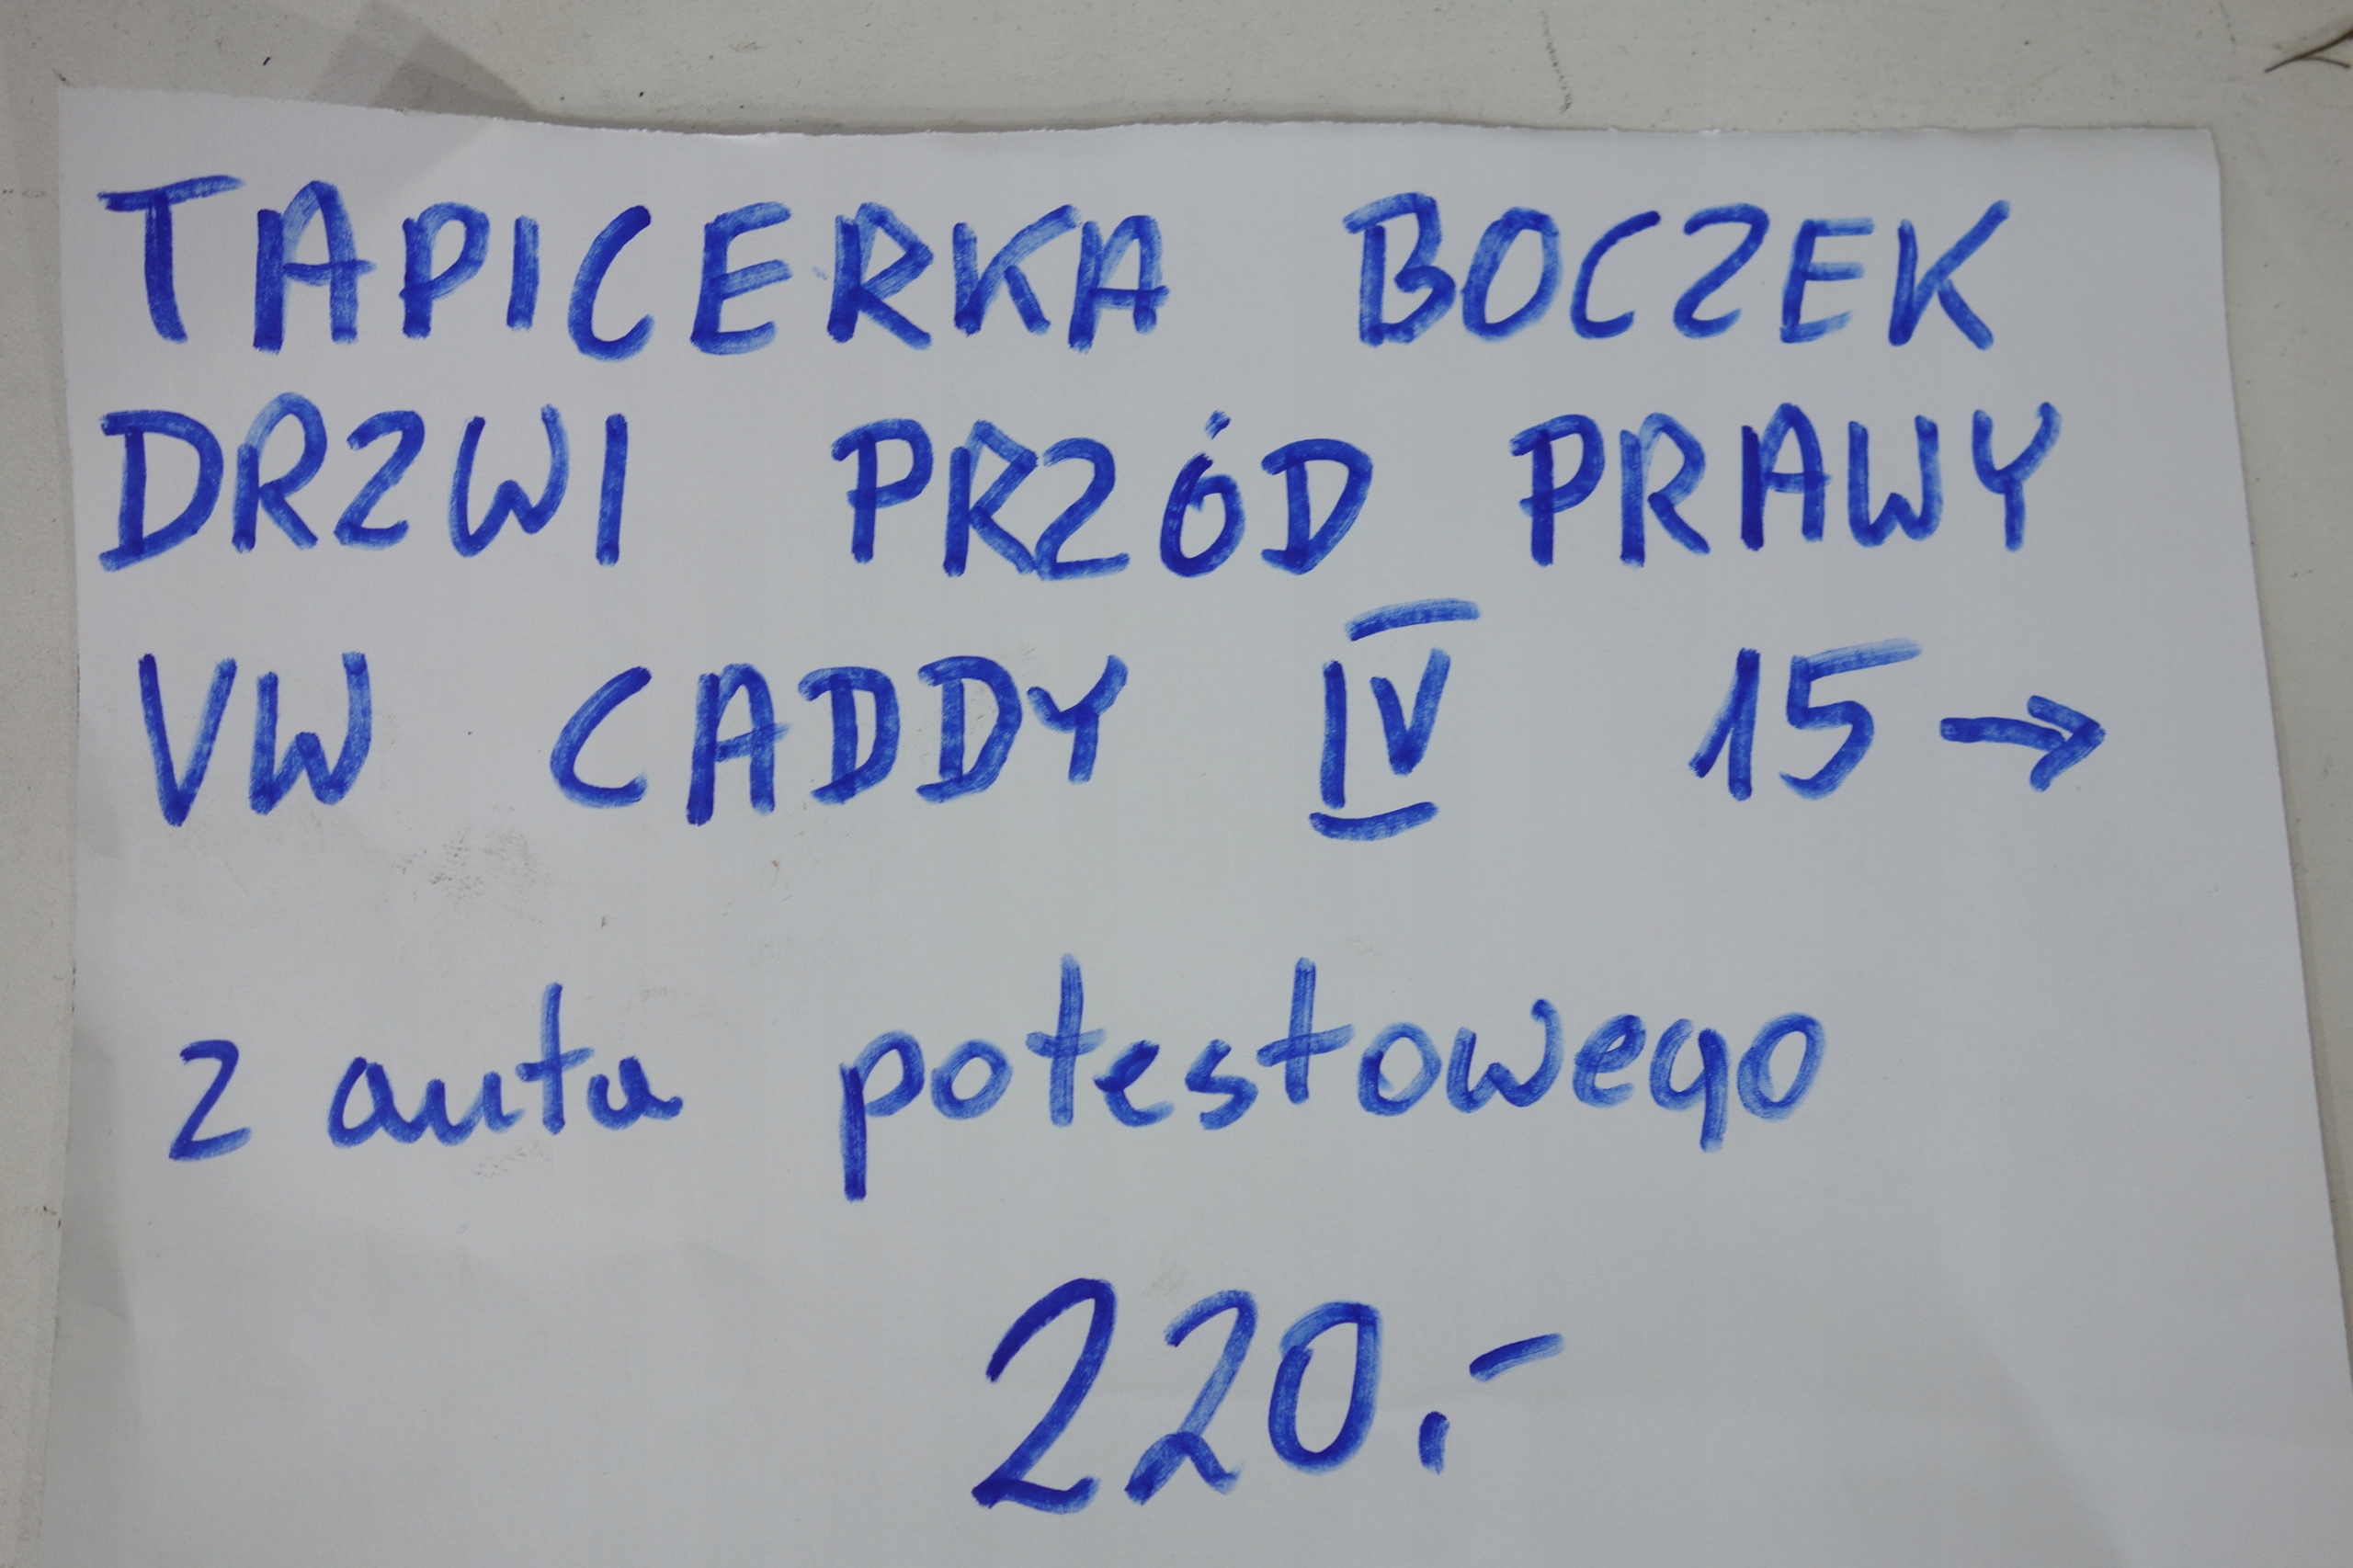 TAPICERKA BOCZEK
DRZWI PRZÓD PRAWY
VW CADDY IV 15→
z auta potestowego
220.-